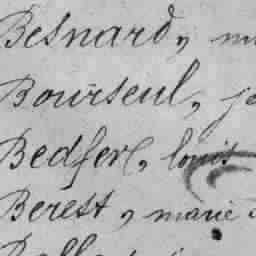 Besnard,
Bourseul,
Bedfert, louis
Berest, marie